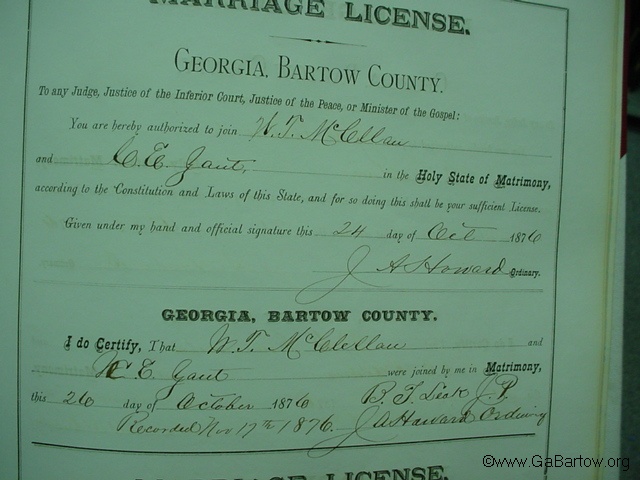 MARRIAGE LICENSE.
GEORGIA, BARTOW COUNTY.
To any Judge, Justice of the Inferior Court, Justice of the Peace, or Minister of the Gospel:
You are hereby authorized to join W. T. McClellan
and C. E. Gaut, in the Holy State of Matrimony,
according to the Constitution and Laws of this State, and for so doing this shall be your sufficient License.
Given under my hand and official signature this 24 day of Oct 1876
J A Howard Ordinary.
GEORGIA, BARTOW COUNTY.
I do Certify, That W. T. McClellan and
C E. Gaut were joined by me in Matrimony,
this 26 day of October 1876 B. F. J.P.
Recorded Nov 17th 1876. J A Howard Ordinary
MARRIAGE LICENSE.
©www.GaBartow.org